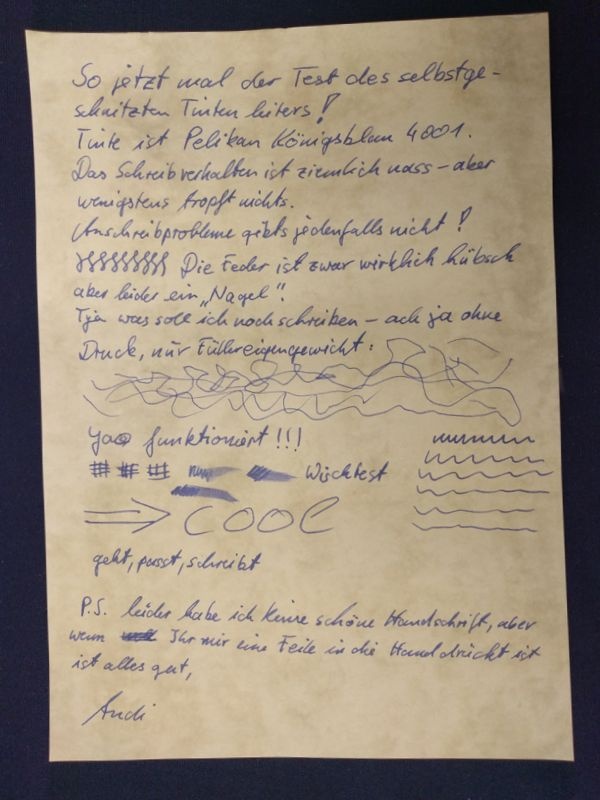 So jetzt mal der Test des selbstge-
schnitzten Tintenleiters!
Tinte ist Pelikan Königsblau 4001.
Das Schreibverhalten ist ziemlich nass - aber
wenigstens tropft nichts.
Anschreibprobleme gibts jedenfalls nicht!
Die Feder ist zwar wirklich hübsch
aber leider ein „Nagel".
Tja was soll ich noch schreiben - ach ja ohne
Druck, nur Füllereigengewicht:
Jaa funktioniert!!!
Wischtest
COOL
geht, passt, schreibt
P.S. leider habe ich keine schöne Handschrift, aber
wenn Ihr mir eine Feile in die Hand drückt ist
ist alles gut,
Andi